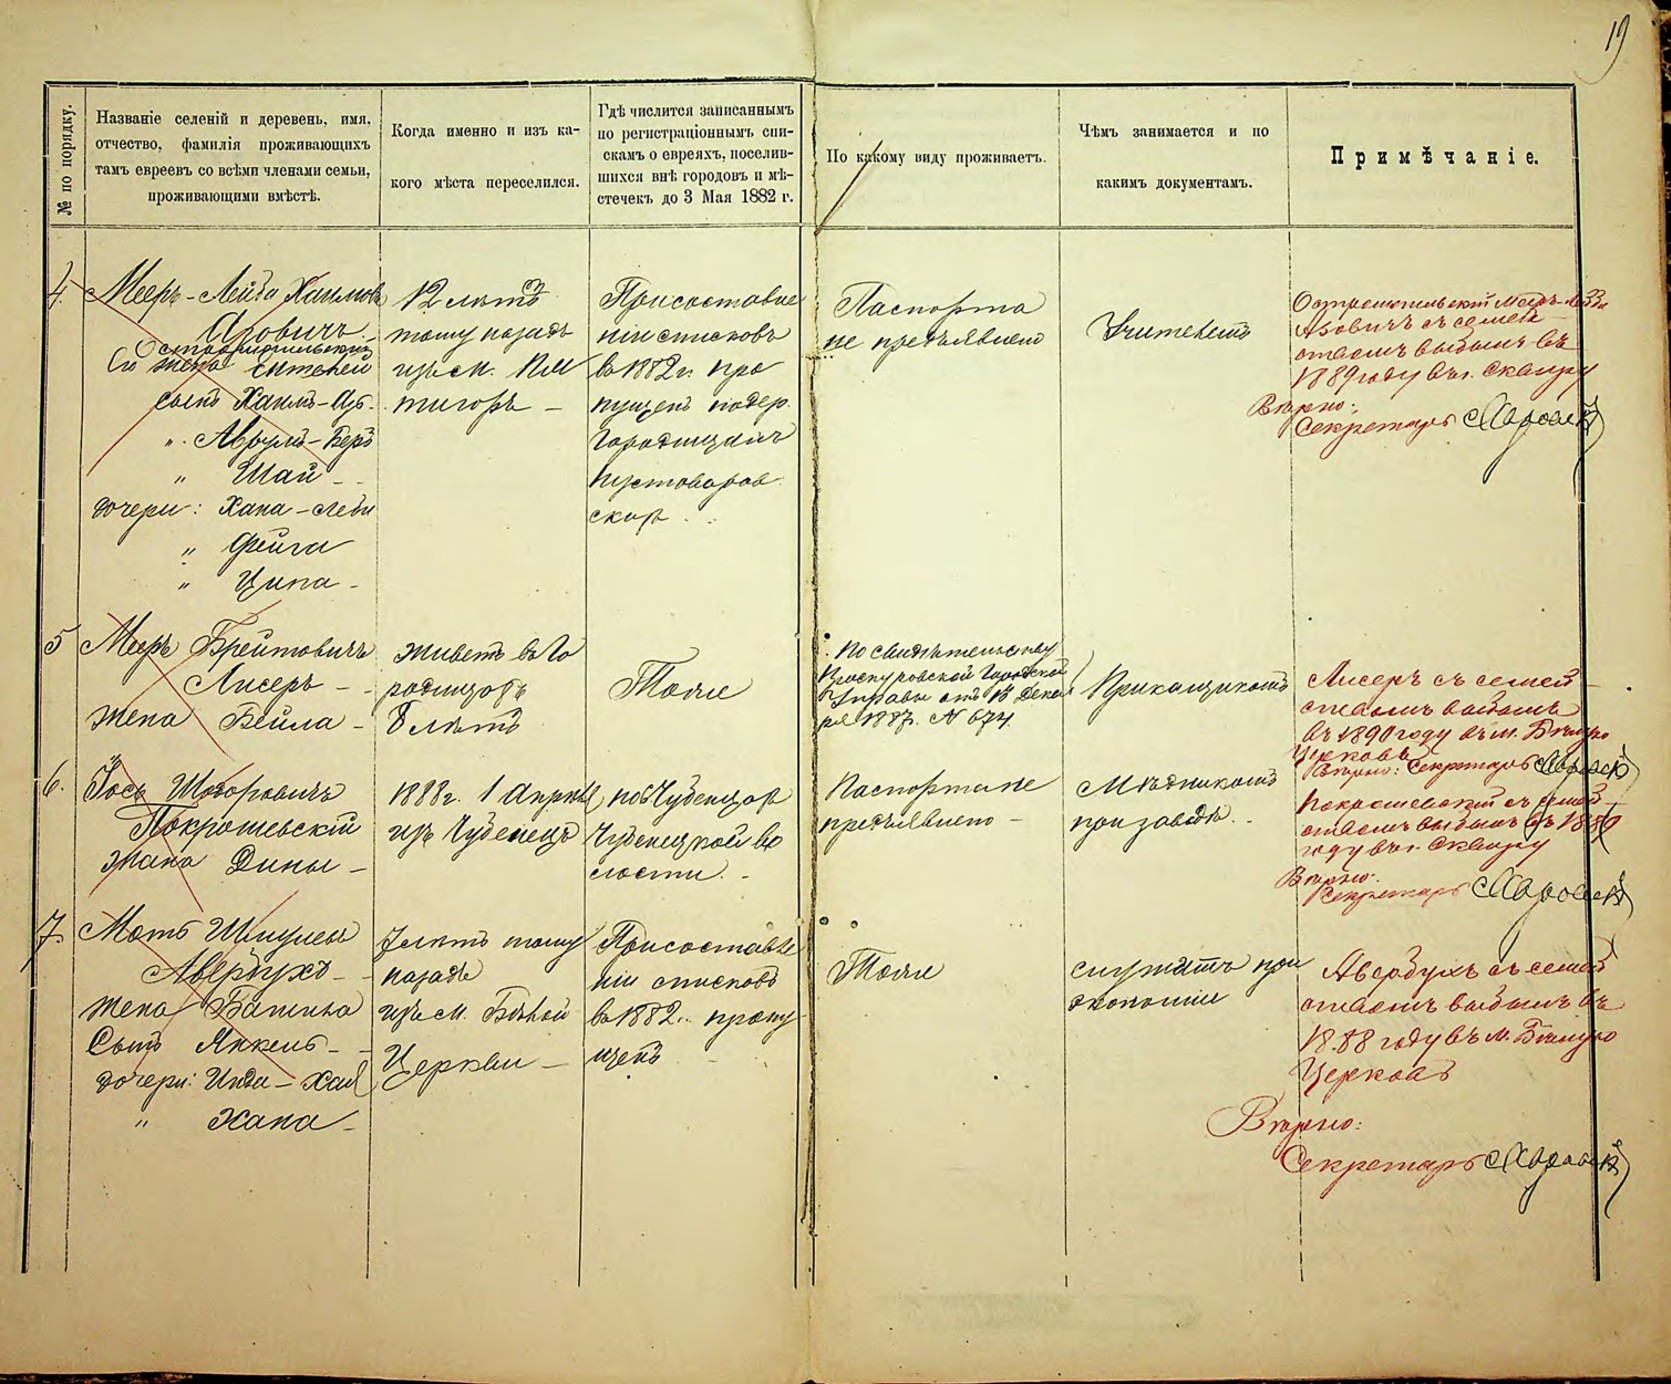 19
№ по порядку.
Названіе селеній и деревень, имя,
отчество, фамилія проживающихъ
тамъ евреевъ со всѣми членами семьи,
проживающими вмѣстѣ.
Когда именно и изъ ка-
кого мѣста переселился.
Гдѣ числится записаннымъ
по регистраціоннымъ спи-
скамъ о евреяхъ, поселив-
шихся внѣ городовъ и мѣ-
стечекъ до 3 Мая 1882 г.
По какому виду проживаетъ.
Чѣмъ занимается и по
какимъ документамъ.
Примѣчаніе.
4.
Мееръ-Лейба Хаимовъ
жена
сынъ Хаимъ-
" Аврумъ-Беръ
" Шая
дочери: Хана-Леби
" Фейга
" Ципа -
12 лѣтъ
тому назадъ
изъ м.
При составле
ніи списковъ
въ 1882 г. про
пущенъ
Паспорта
не предъявлено
Учителемъ
съ семей
ствомъ выбылъ въ
1889 году въ г. Сквиру
Вѣрно:
Секретарь
5
Мееръ Брейтовичъ
Лисеръ -
жена Бейла -
живетъ въ Го
родищѣ
лѣтъ
Тоже
По свидѣтельству
Городской
Управы отъ
ря 1887. № 674
Прикащикомъ
Лисеръ съ семей
ствомъ выбылъ
въ 1890 году въ м. Бѣлую
Церковь
Вѣрно: Секретарь
6.
Іось
Покрошевскій
жена Дины -
1888 г. 1 Апрѣля
изъ Чубинецъ
Чубинецкой во
лости. -
Паспорта не
предъявлено -
Мѣдникомъ
при заводѣ. -
Покрошевскій съ семей
ствомъ выбылъ въ 1889
году въ г. Сквиру
Вѣрно:
Секретарь
7.
Моть Шмулевъ
Авербухъ -
жена
Сынъ Янкель -
дочери: Инда-Хая
" Хана -
7 лѣтъ тому
назадъ
изъ м. Бѣлой
Церкви -
При составле
ніи списковъ
въ 1882. пропу
щенъ
Тоже
служитъ при
экономіи
Авербухъ съ семей
ствомъ выбылъ въ
1888 году въ м. Бѣлую
Церковь
Вѣрно:
Секретарь